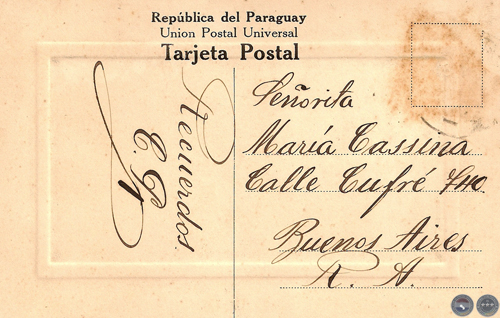 República del Paraguay
Union Postal Universal
Tarjeta Postal
Recuerdos
C. P.
Señorita
María Cassina
Calle Cufré 740
Buenos Aires
R. A.